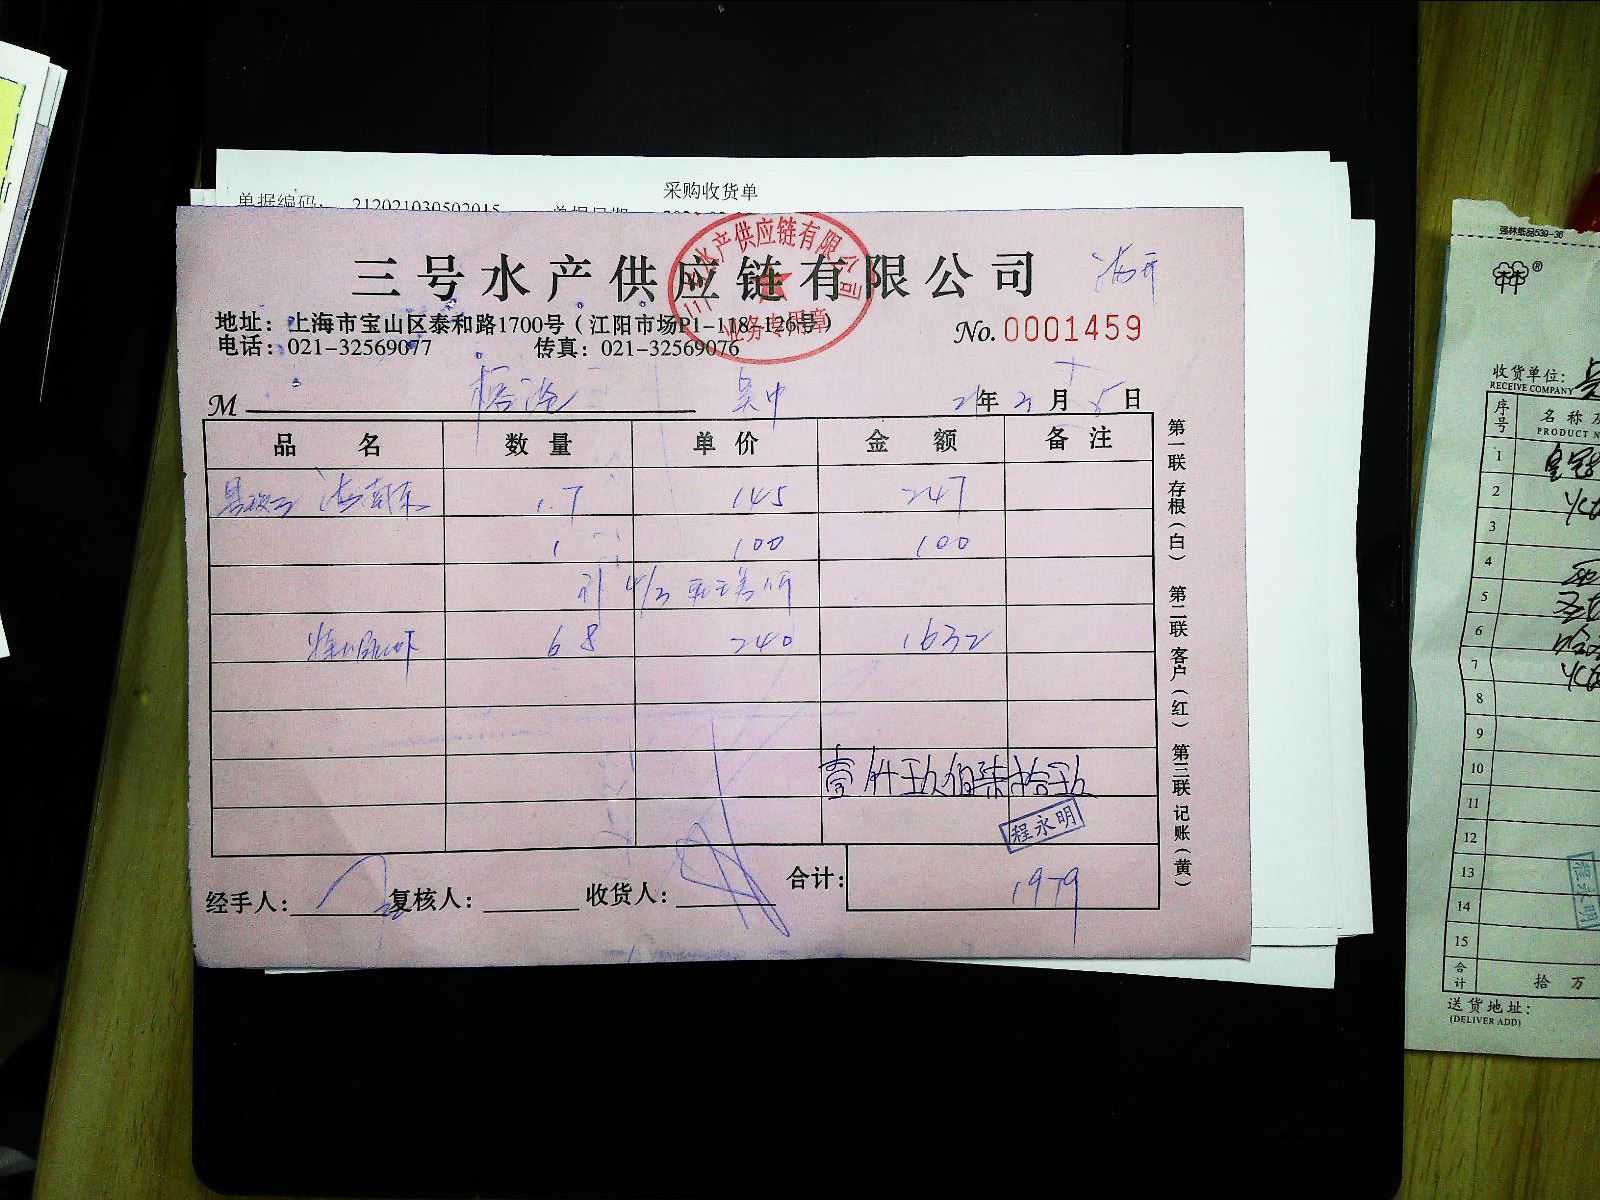 采购收货单
单据编码: 212021030502015 单据日期
三号水产供应链有限公司
三号水产供应链有限公司
业务专用章
地址：上海市宝山区泰和路1700号（江阳市场P1-118-126号）
No. 0001459
电话：021-32569077 传真：021-32569076
M 吴中 21年3月5日
品名 数量 单价 金额 备注
1.7 145 247
1 100 100
68 240 1632
壹仟玖佰柒拾玖
程永明
经手人： 复核人： 收货人： 合计： 1979
第一联存根（白） 第二联客户（红） 第三联记账（黄）
强林纸品539-36
林林®
收货单位：
RECEIVE COMPANY
序号 名称及
PRODUCT N
1
2
3
4
5
6
7
8
9
10
11
12
13
14
15
程永明
合计 拾 万
送货地址：
(DELIVER ADD)